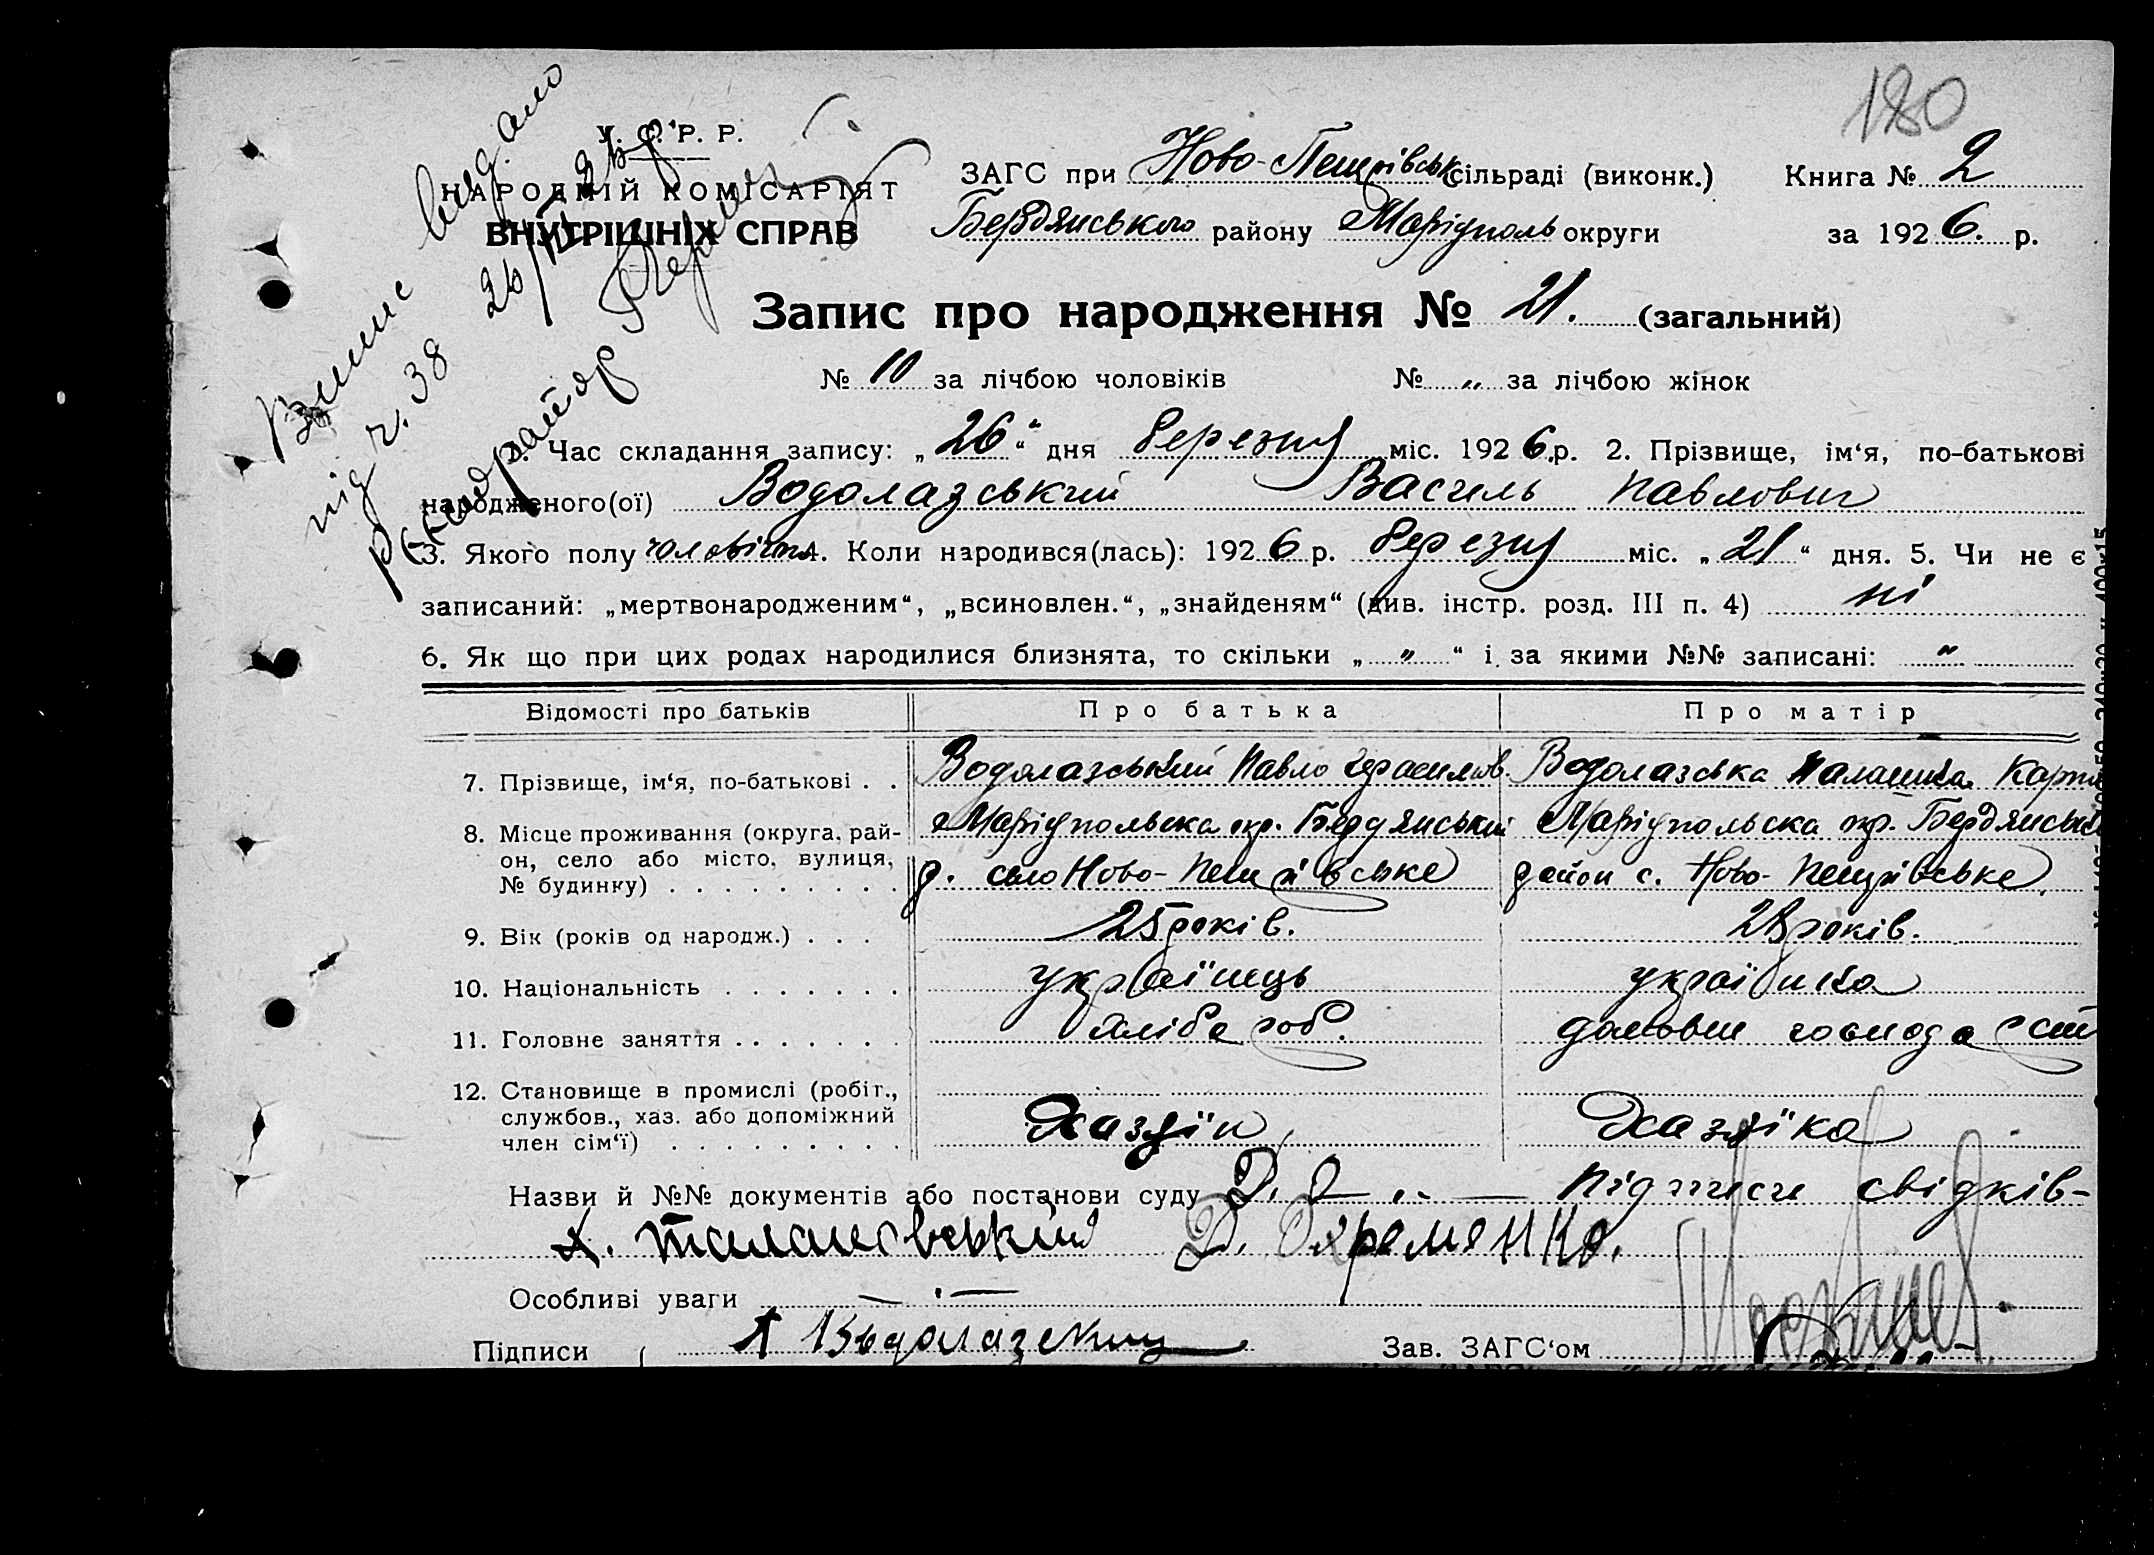 180
Випис видано
під ч. 38
У. С. Р. Р.
НАРОДНІЙ КОМІСАРІЯТ
ВНУТРІШНІХ СПРАВ
ЗАГС при Ново-Петрівськ сільраді (виконк.) Книга № 2
Бердянського району Маріуполь округи за 1926. р.
Запис про народження № 21. (загальний)
№ 10 за лічбою чоловіків № „ за лічбою жінок
1. Час складання запису: „26“ дня березня міс. 1926 р. 2. Прізвище, ім‘я, по-батькові
народженого(ої) Водолазський Василь Павлович
3. Якого полу чоловіча 4. Коли народився(лась): 1926 р. березня міс. „21“ дня. 5. Чи не є
записаний: „мертвонародженим“, „всиновлен.“, „знайденям“ (див. інстр. розд. III п. 4) ні
6. Як що при цих родах народилися близнята, то скільки „ „ “ і за якими №№ записані: „
Відомості про батьків Про батька Про матір
7. Прізвище, ім‘я, по-батькові . . Водолазський Павло Герасимов. Водолазська Палашка Карп
8. Місце проживання (округа, рай- Маріупольська окр. Бердянський Маріупольська окр. Бердянськ
он, село або місто, вулиця,
№ будинку) . . . . . . . . . р. село Ново-Петрівське район с. Ново-Петрівське
9. Вік (років од народж.) . . . 25 років. 28 років.
10. Національність . . . . . . . українець українка
11. Головне заняття . . . . . . . хлібороб. домашн господарст
12. Становище в промислі (робіт.,
службов., хаз. або допоміжний
член сім‘ї) . . . . . . . . . Хазяїн Хазяїка
Назви й №№ документів або постанови суду Підписи свідків-
Д. Охременко.
Особливі уваги —
Підписи Водолазский Зав. ЗАГС‘ом